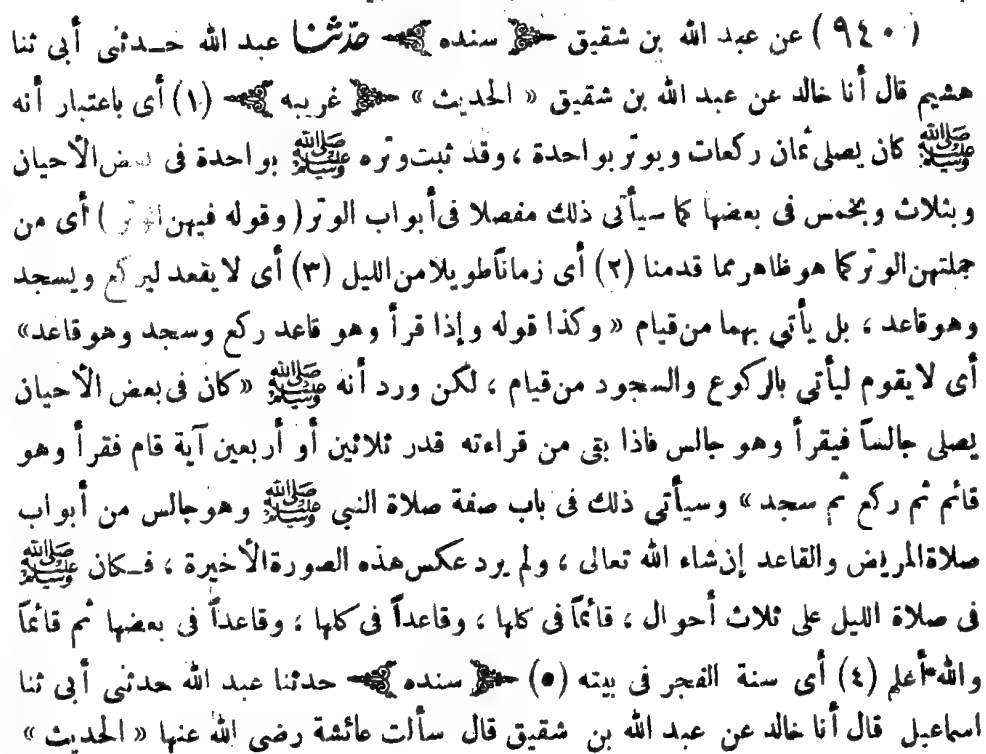 (٩٤٠) عن عبد الله بن شقيق ﴿ سنده ﴾ حدثنا عبد الله حدثنى أبى ثنا
هشيم قال أنا خالد عن عبد الله بن شقيق « الحديث » ﴿ غريبه ﴾ (١) أى باعتبار أنه
ﷺ كان يصلى ثمان ركعات ويوتر بواحدة ، وقد ثبت وتره ﷺ بواحدة فى بعض الأحيان
وبثلاث وبخمس فى بعضها كما سيأتى ذلك مفصلا فى أبواب الوتر ( وقوله فيهن الوتر ) أى من
جملتهن الوتر كما هو ظاهر مما قدمنا (٢) أى زماناً طويلا من الليل (٣) أى لا يقعد ليركع ويسجد
وهو قاعد ، بل يأتي بهما من قيام « وكذا قوله وإذا قرأ وهو قاعد ركع وسجد وهو قاعد»
أى لا يقوم ليأتي بالركوع والسجود من قيام ، لكن ورد أنه ﷺ «كان فى بعض الأحيان
يصلى جالساً فيقرأ وهو جالس فاذا بقى من قراءته قدر ثلاثين أو أربعين آية قام فقرأ وهو
قائم ثم ركع ثم سجد » وسيأتي ذلك فى باب صفة صلاة النبي ﷺ وهو جالس من أبواب
صلاة المريض والقاعد إن شاء الله تعالى ، ولم يرد عكس هذه الصورة الأخيرة ، فـكان ﷺ
فى صلاة الليل على ثلاث أحوال ، قائماً فى كلها ، وقاعداً فى كلها ، وقاعداً فى بعضها ثم قائماً
والله أعلم (٤) أى سنة الفجر فى بيته (٥) ﴿ سنده ﴾ حدثنا عبد الله حدثنى أبى ثنا
اسماعيل قال أنا خالد عن عبد الله بن شقيق قال سألت عائشة رضى الله عنها « الحديث »